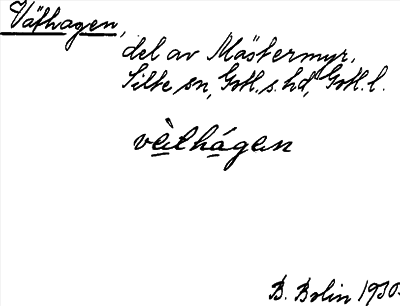 Väthagen,
del av Mästermyr,
Silte sn, Gotl. s. hd, Gotl. l.
vèthágen
B. Bolin 1930.